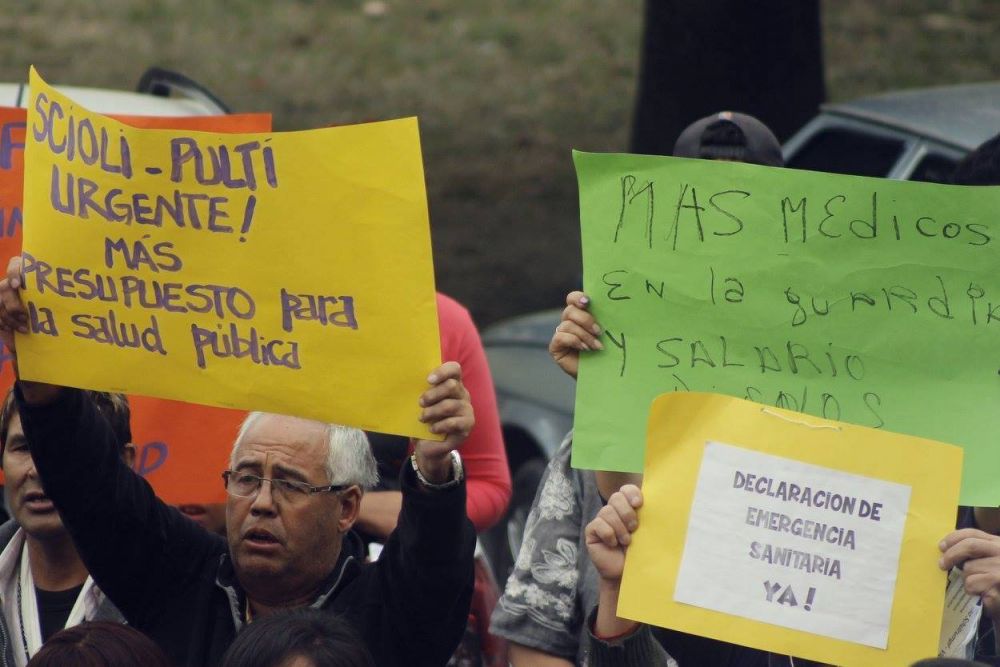 SCIOLI - PULTI
URGENTE!
MÁS
PRESUPUESTO para
la salud pública
MAS MEDICOS
EN la guardia
Y SALARIO
DECLARACION DE
EMERGENCIA
SANITARIA
YA!